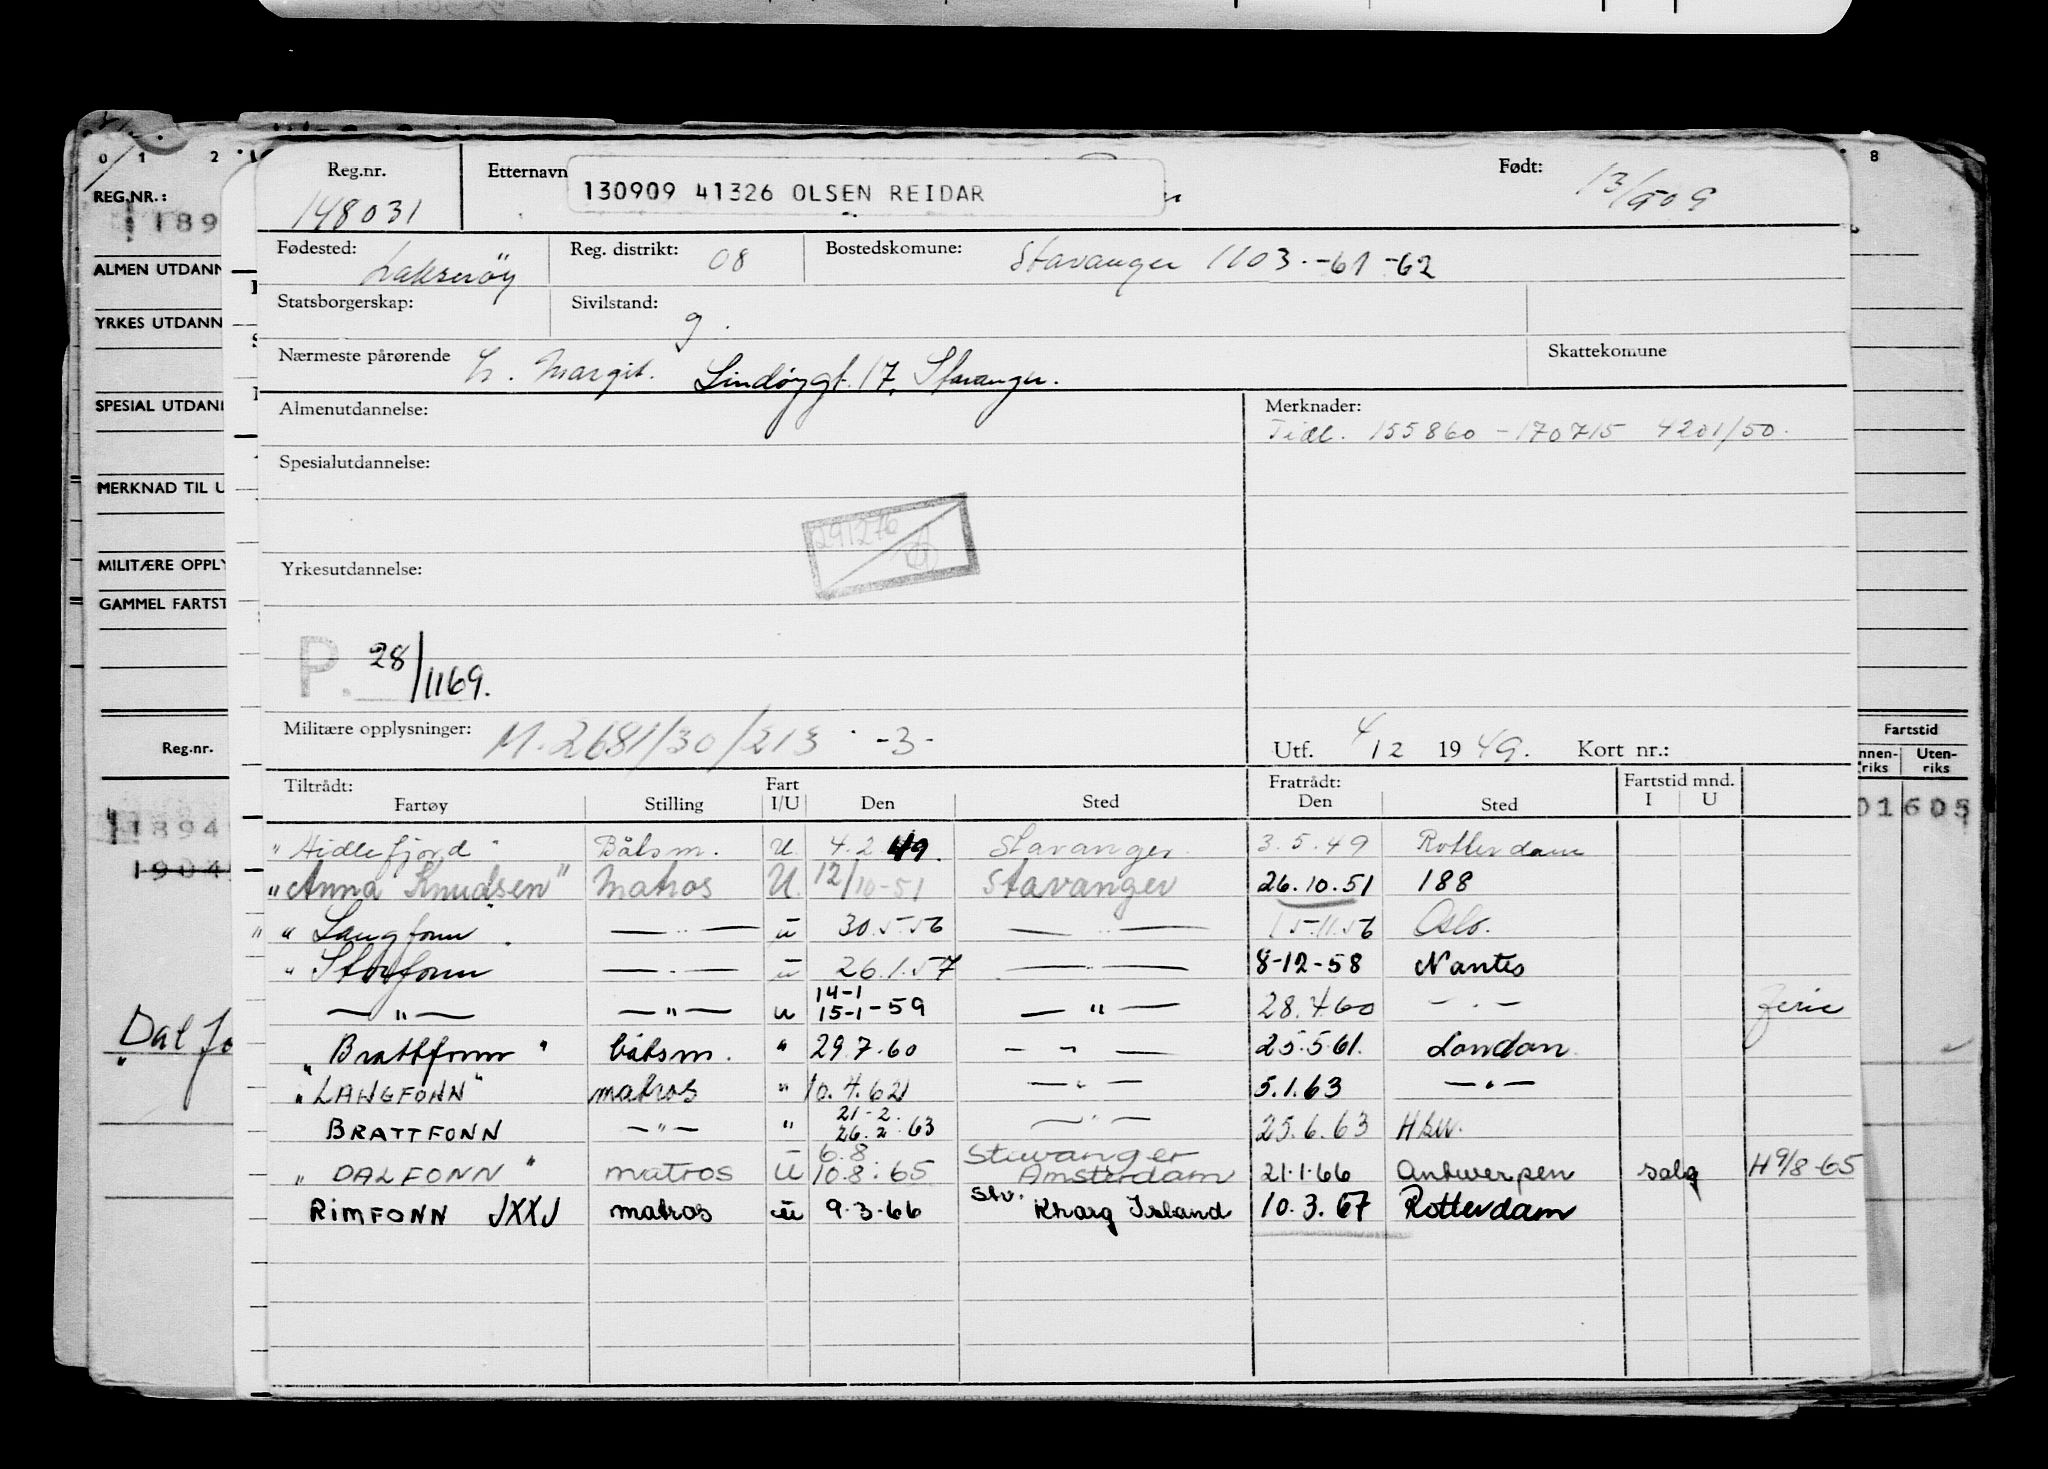 0 1 2 8
REG.NR.:
189
ALMEN UTDANN
YRKES UTDANN
SPESIAL UTDAN
MERKNAD TIL U
MILITÆRE OPPLY
GAMMEL FARTST
Reg.nr.
1894
1904
Dal fo
Reg.nr. Etternavn 130909 41326 OLSEN REIDAR Født: 13/9 09
148031
Fødested: Reg. distrikt: 08 Bostedskomune: Stavanger 1103.-61-62
Statsborgerskap: Sivilstand: g.
Nærmeste pårørende h. Margit. Lindøygt. 17, Stavanger. Skattekomune
Almenutdannelse: Merknader:
Tidl. 155860 - 170715 4201/50.
Spesialutdannelse:
291276
Yrkesutdannelse:
P. 28/1169.
Militære opplysninger: M. 2681/30/213 -3- Utf. 4/12 1949. Kort nr.:
Tiltrådt: Fart Fratrådt: Fartstid mnd.
Fartøy Stilling I/U Den Sted Den Sted I U
"Hidlefjord" Båtsm. U 4.2 49. Stavanger 3.5.49 Rotterdam
"Anna Knudsen" Matros U. 12/10-51 Stavanger 26.10.51 188
" " Langfonn — " — u 30.5.56 — " — 15.11.56 Oslo.
" Storfonn — " — u 26.1.57 — " — 8-12-58 Nantes
— " — — " — u 14-1 15-1-59 — " — 28.4.60 — " — ferie
"Brattfonn" båtsm. " 29.7.60 — " — 25.5.61. London
"LANGFONN" matros " 10.4.62 — " — 5.1.63 — " —
BRATTFONN — " — " 21-2. 26.2.63 — " — 25.6.63 Hbu.
"DALFONN" matros U 6.8 10.8.65 Stavanger Amsterdam 21.1.66 Antwerpen salg H 9/8-65
RIMFONN JXXJ matros u 9.3.66 Stv. Kharg Island 10.3.67 Rotterdam
Fartstid
nnen-riks Uten-riks
01605